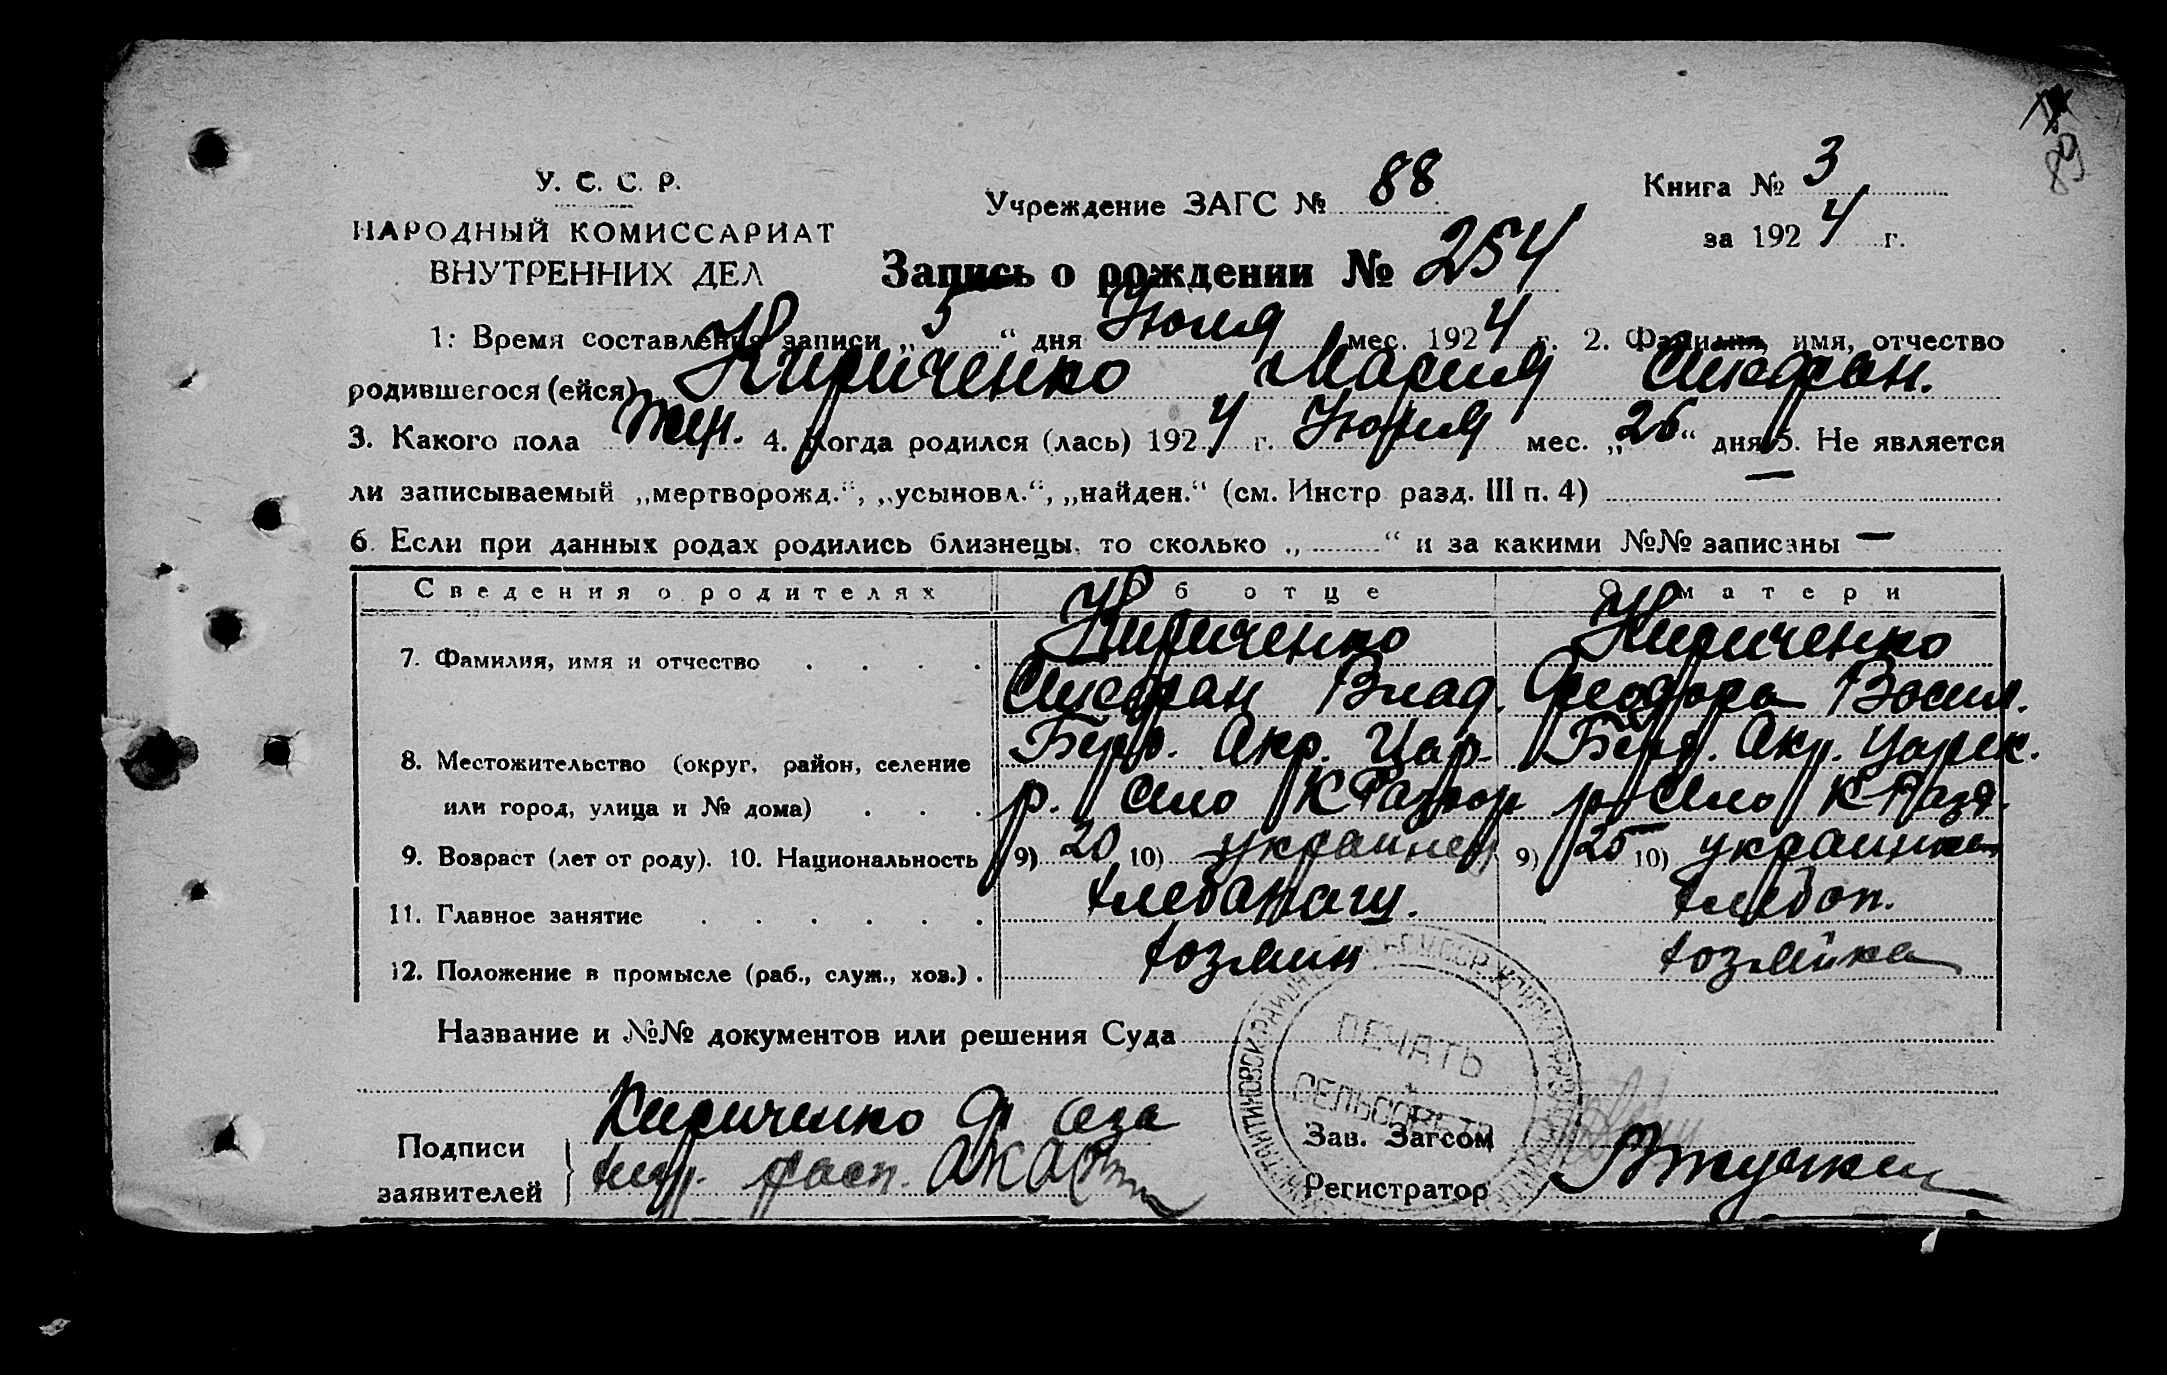 89
У. С. С. Р.
НАРОДНЫЙ КОМИССАРИАТ
ВНУТРЕННИХ ДЕЛ
Учреждение ЗАГС № 88
Книга № 3
за 1924 г.
Запись о рождении № 254
1. Время составления записи „5“ дня Июля мес. 1924 г. 2. Фамилия, имя, отчество
родившегося (ейся) Кириченко Мария
3. Какого пола жен. 4. Когда родился (лась) 1924 г. мес. „26“ дня 5. Не является
ли записываемый „мертворожд.“, „усыновл.“, „найден.“ (см. Инстр разд. III п. 4) —
6. Если при данных родах родились близнецы, то сколько „ “ и за какими №№ записаны —
Сведения о родителях Об отце О матери
7. Фамилия, имя и отчество Кириченко Кириченко
Влад. Феодора Васил.
8. Местожительство (округ, район, селение Окр. Цар. Окр. Царек.
или город, улица и № дома) р. село р. село
9. Возраст (лет от роду). 10. Национальность 9) 20 10) украинец 9) 25 10) украинка
11. Главное занятие хлебопашц. хлебоп.
12. Положение в промысле (раб., служ., хоз.) хозяин хозяйка
Название и №№ документов или решения Суда
ПЕЧАТЬ
СЕЛЬСОВЕТА
Подписи
заявителей
Кириченко
Зав. Загсом
Регистратор